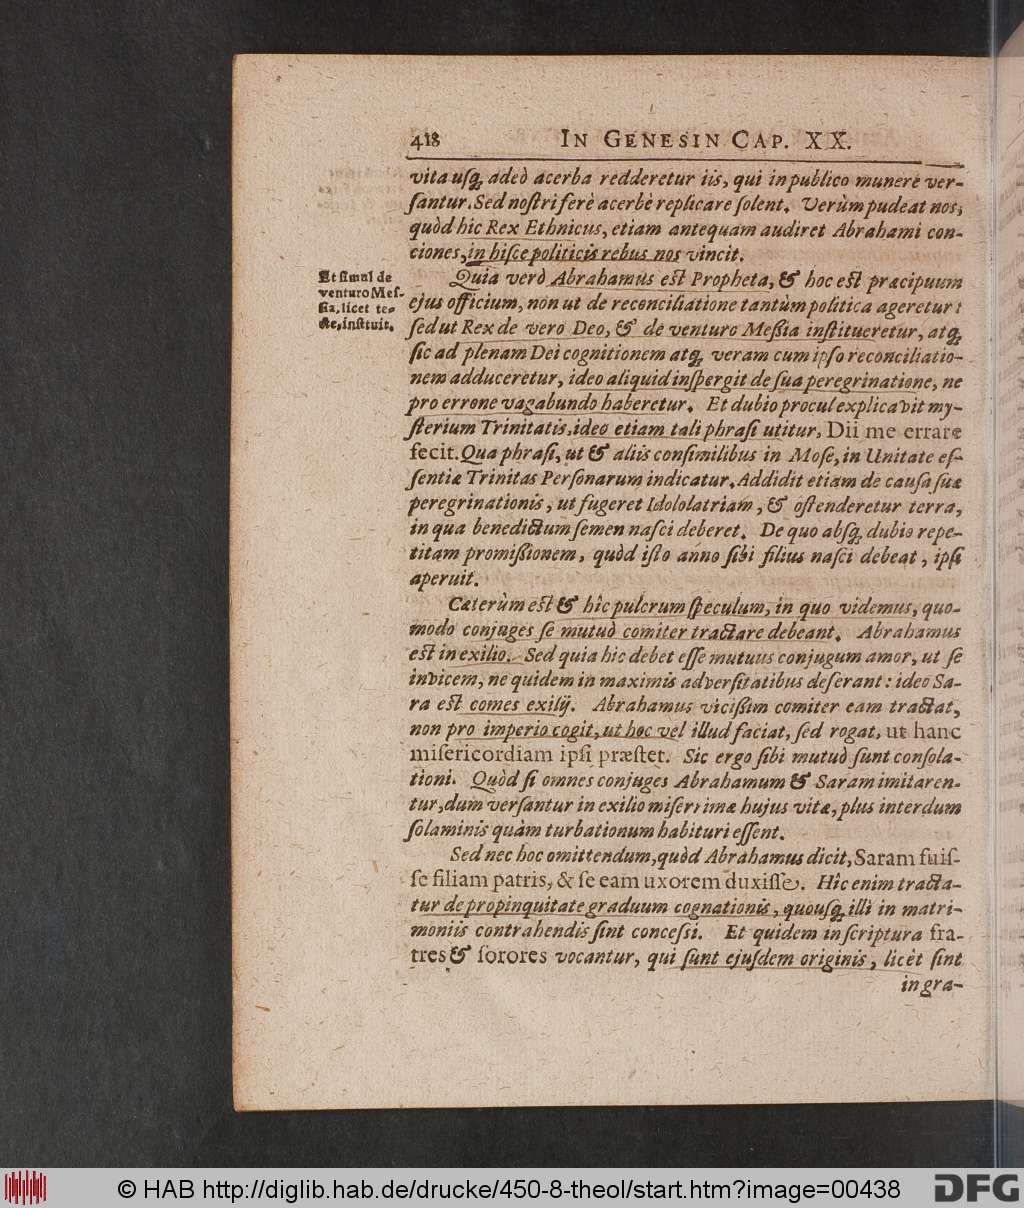 418 IN GENESIN CAP. XX.
vita usq́; adeò acerba redderetur iis, qui in publico munere ver-
ſantur. Sed noſtri ferè acerbè replicare ſolent. Verùm pudeat nos,
quòd hic Rex Ethnicus, etiam antequam audiret Abrahami con-
ciones, in hiſce politicis rebus nos vincit.
Et ſimul de
venturo Meſ-
ſia, licet te-
ctè, inſtituit.
Quia verò Abrahamus est Propheta, & hoc est præcipuum
ejus officium, non ut de reconciliatione tantùm politica ageretur:
ſed ut Rex de vero Deo, & de venturo Meßia inſtitueretur, atq́;
ſic ad plenam Dei cognitionem atq́; veram cum ipſo reconciliatio-
nem adduceretur, ideo aliquid inſpergit de ſua peregrinatione, ne
pro errone vagabundo haberetur. Et dubio procul explicavit my-
ſterium Trinitatis, ideo etiam tali phraſi utitur, Dii me errare
fecit. Qua phraſi, ut & aliis conſimilibus in Moſe, in Unitate eſ-
ſentiæ Trinitas Perſonarum indicatur. Addidit etiam de cauſa ſuæ
peregrinationis, ut fugeret Idololatriam, & oſtenderetur terra,
in qua benedictum ſemen naſci deberet. De quo abſq́; dubio repe-
titam promißionem, quòd iſto anno ſibi filius naſci debeat, ipſi
aperuit.
Cæterùm est & hîc pulcrum ſpeculum, in quo videmus, quo-
modo conjuges ſe mutuò comiter tractare debeant. Abrahamus
est in exilio. Sed quia hic debet eſſe mutuus conjugum amor, ut ſe
invicem, ne quidem in maximis adverſitatibus deſerant: ideo Sa-
ra est comes exilij. Abrahamus vicißim comiter eam tractat,
non pro imperio cogit, ut hoc vel illud faciat, ſed rogat, ut hanc
miſericordiam ipſi præſtet. Sic ergo ſibi mutuò ſunt conſola-
tioni. Quòd ſi omnes conjuges Abrahamum & Saram imitaren-
tur, dum verſantur in exilio miſerrimæ hujus vitæ, plus interdum
ſolaminis quàm turbationum habituri eſſent.
Sed nec hoc omittendum, quòd Abrahamus dicit, Saram fuiſ-
ſe filiam patris, & ſe eam uxorem duxiſſe. Hîc enim tracta-
tur de propinquitate graduum cognationis, quouſq́; illi in matri-
moniis contrahendis ſint conceſsi. Et quidem in ſcriptura fra-
tres & ſorores vocantur, qui ſunt ejuſdem originis, licèt ſint
in gra-
© HAB http://diglib.hab.de/drucke/450-8-theol/start.htm?image=00438
DFG